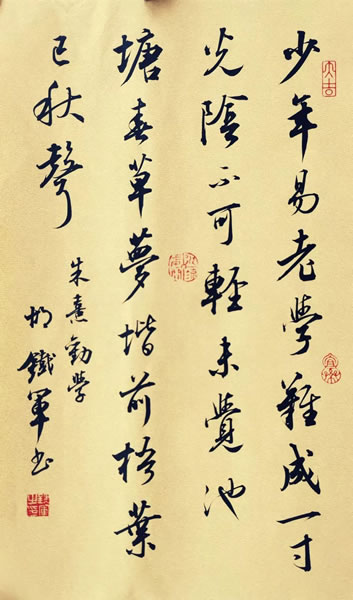 少年易老學難成一寸
光陰不可輕未覺池
塘春草夢堦前梧葉
已秋聲
朱熹勸學
胡鐵軍书